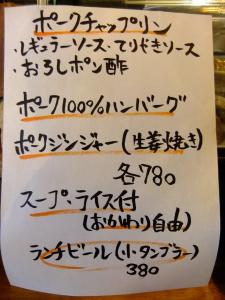 ポークチャップリン
・レギュラーソース・てりやきソース
・おろしポン酢
ポーク100%ハンバーグ
ポークジンジャー(生姜焼き)
各780
スープ・ライス付
(おかわり自由)
ランチビール(小タンブラー)
380